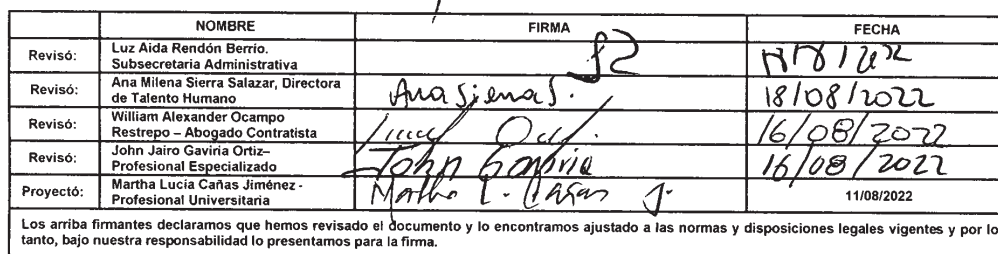 NOMBRE FIRMA FECHA
Revisó: Luz Aida Rendón Berrio.
Subsecretaria Administrativa
Revisó: Ana Milena Sierra Salazar, Directora
de Talento Humano Ana Sierra S. 18/08/2022
Revisó: William Alexander Ocampo
Restrepo – Abogado Contratista 16/08/2022
Revisó: John Jairo Gaviria Ortiz–
Profesional Especializado John Gaviria 16/08/2022
Proyectó: Martha Lucía Cañas Jiménez -
Profesional Universitaria Martha L. Cañas J. 11/08/2022
Los arriba firmantes declaramos que hemos revisado el documento y lo encontramos ajustado a las normas y disposiciones legales vigentes y por lo
tanto, bajo nuestra responsabilidad lo presentamos para la firma.